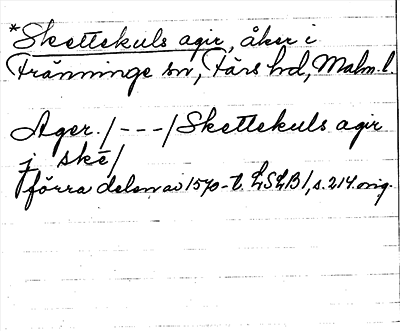 *Skettekuls agir, åker i
Tränninge sn, Färs hd, Malm. l.
Ager. / - - - / Skettekuls agir
j ske /
förra delen av 1570-t. LSLB 1, s. 214. orig.